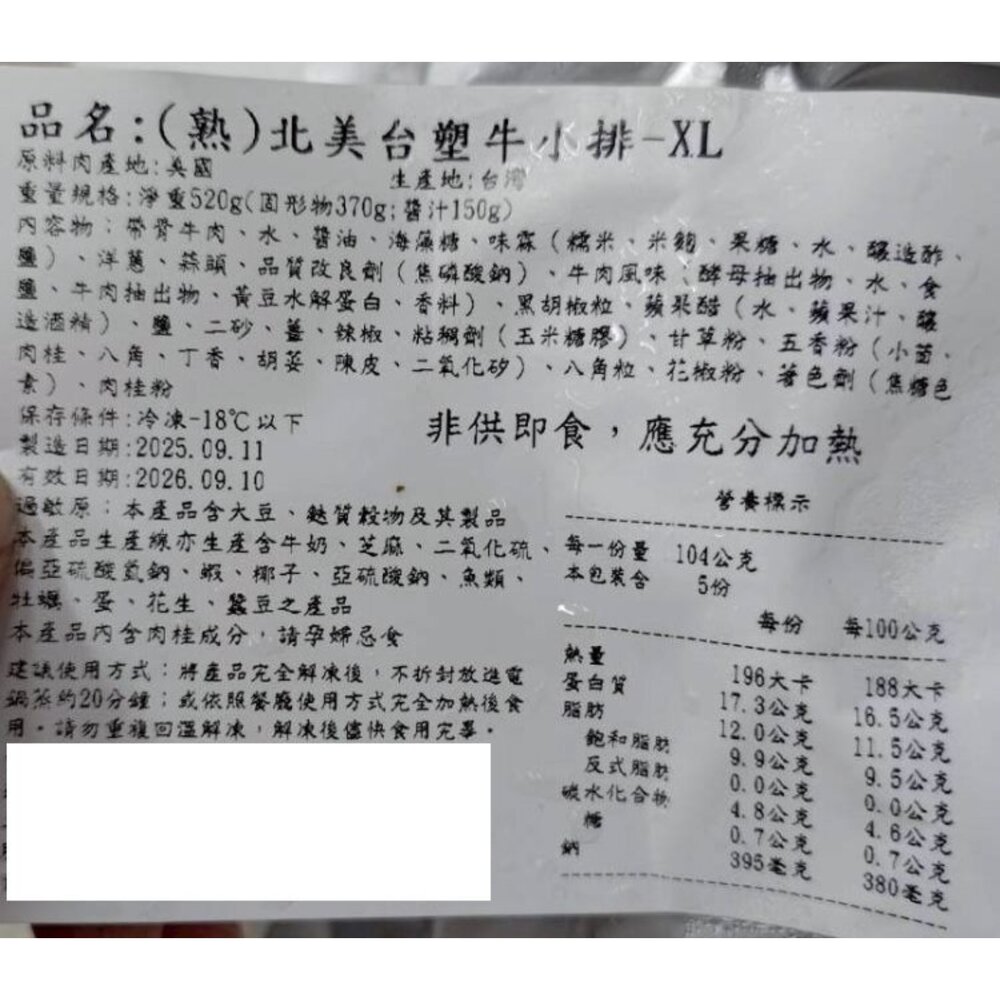 品名:(熟)北美台塑牛小排-XL
原料肉產地:美國
生產地:台灣
重量規格:淨重520g(固形物370g;醬汁150g)
內容物:帶骨牛肉、水、醬油、海藻糖、味霖(糯米、米麴、果糖、水、釀造酢、
鹽)、洋蔥、蒜頭、品質改良劑(焦磷酸鈉)、牛肉風味:酵母抽出物、水、食
鹽、牛肉抽出物、黃豆水解蛋白、香料)、黑胡椒粒、蘋果醋(水、蘋果汁、釀
造酒精)、鹽、二砂、薑、辣椒、粘稠劑(玉米糖膠)、甘草粉、五香粉(小茴、
肉桂、八角、丁香、胡荽、陳皮、二氧化矽)、八角粒、花椒粉、著色劑(焦糖色
素)、肉桂粉
保存條件:冷凍-18℃以下
製造日期:2025.09.11
有效日期:2026.09.10
非供即食,應充分加熱
過敏原:本產品含大豆、麩質穀物及其製品
本產品生產線亦生產含牛奶、芝麻、二氧化硫、
偏亞硫酸氫鈉、蝦、椰子、亞硫酸鈉、魚類、
牡蠣、蛋、花生、蠶豆之產品
本產品內含肉桂成分,請孕婦忌食
建議使用方式:將產品完全解凍後,不拆封放進電
鍋蒸約20分鐘;或依照餐廳使用方式完全加熱後食
用。請勿重複回溫解凍,解凍後儘快食用完畢。
營養標示
每一份量 104公克
本包裝含 5份
每份 每100公克
熱量 196大卡 188大卡
蛋白質 17.3公克 16.5公克
脂肪 12.0公克 11.5公克
飽和脂肪 9.9公克 9.5公克
反式脂肪 0.0公克 0.0公克
碳水化合物 4.8公克 4.6公克
糖 0.7公克 0.7公克
鈉 395毫克 380毫克